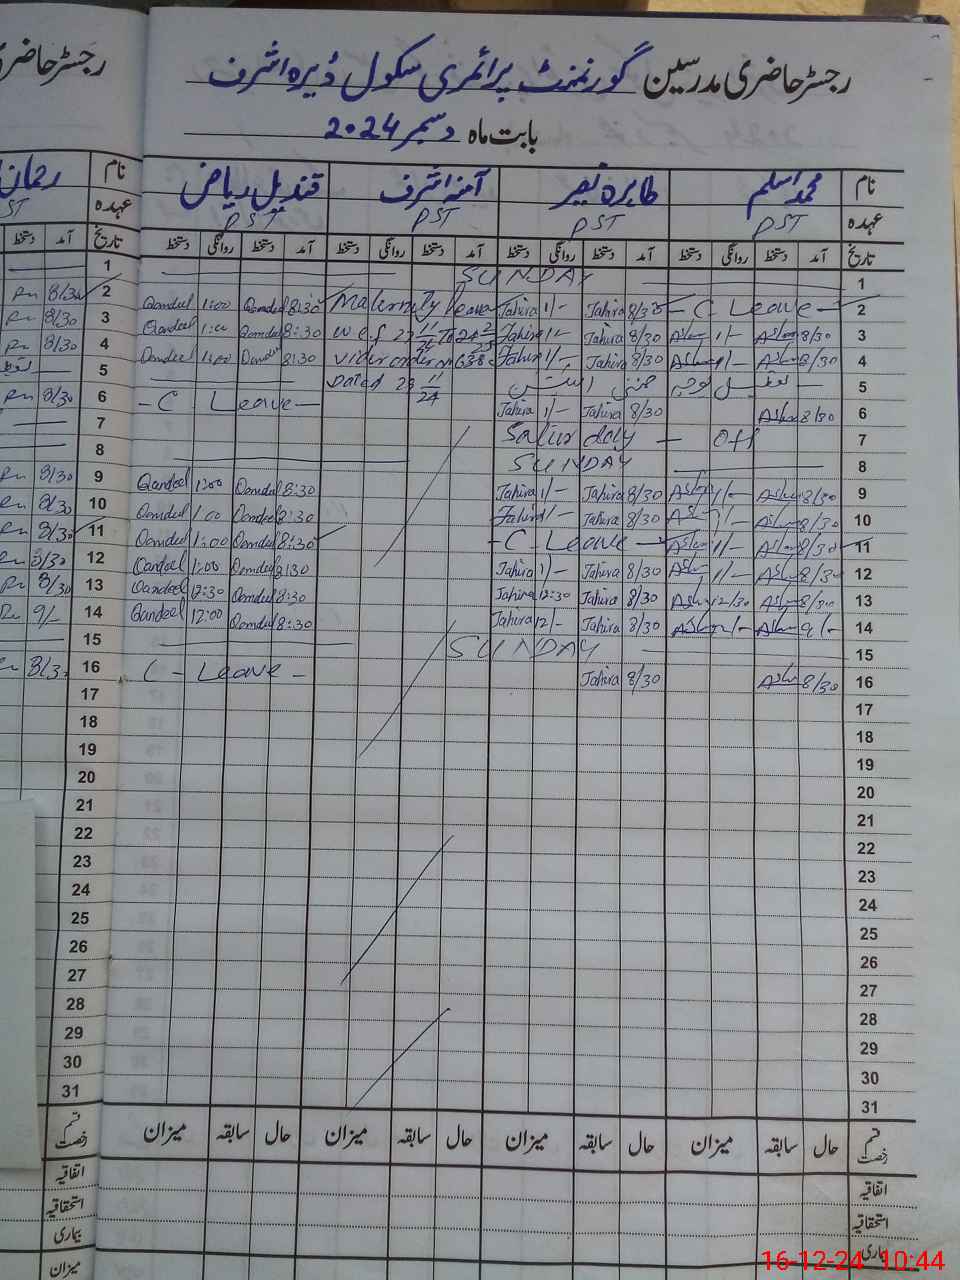 رجسٹر حاضری مدرسین گورنمنٹ پرائمری سکول ڈیرہ اشرف
بابت ماہ دسمبر 2024
نام محمد اسلم طاہرہ نصیر آمنہ اشرف قندیل ریاض نام
عہدہ PST PST PST PST عہدہ
تاریخ آمد دستخط روانگی دستخط آمد دستخط روانگی دستخط آمد دستخط روانگی دستخط آمد دستخط روانگی دستخط تاریخ آمد دستخط
1 SUNDAY 1
2 C Leave 8/30 Tahira 1/- Tahira Maternity leave 8:30 Qandeel 1:00 Qandeel 2 8/30
3 8/30 Aslam 1/- Aslam 8/30 Tahira 1/- Tahira 8:30 Qandeel 1:00 Qandeel 3 8/30
4 8/30 Aslam 1/- Aslam 8/30 Tahira 1/- Tahira 8:30 Qandeel 1:00 Qandeel 4 8/30
5 Dated 23 11/24 5
6 8/30 Aslam 8/30 Tahira 1/- Tahira C Leave 6 8/30
7 Saturday Off 7
8 SUNDAY 8
9 8/30 Aslam 1/- Aslam 8/30 Tahira 1/- Tahira 8:30 Qandeel 1:00 Qandeel 9 8/30
10 8/30 Aslam 1/- Aslam 8/30 Tahira 1/- Tahira 8:30 Qandeel 1:00 Qandeel 10 8/30
11 8/30 Aslam 1/- Aslam C Leave 8:30 Qandeel 1:00 Qandeel 11 8/30
12 8/30 Aslam 1/- Aslam 8/30 Tahira 1/- Tahira 8:30 Qandeel 1:00 Qandeel 12 8/30
13 8/30 Aslam 12/30 Aslam 8/30 Tahira 12:30 Tahira 8:30 Qandeel 12:30 Qandeel 13 8/30
14 9/- Aslam 12/- Aslam 8/30 Tahira 12/- Tahira 8:30 Qandeel 12:00 Qandeel 14 9/-
15 SUNDAY 15
16 8/30 Aslam 8/30 Tahira C - Leave 16
17 17
18 18
19 19
20 20
21 21
22 22
23 23
24 24
25 25
26 26
27 27
28 28
29 29
30 30
31 31
قسم رخصت حال سابقہ میزان حال سابقہ میزان حال سابقہ میزان حال سابقہ میزان قسم رخصت
اتفاقیہ اتفاقیہ
استحقاقیہ استحقاقیہ
بیماری بیماری
میزان
16-12-24 10:44